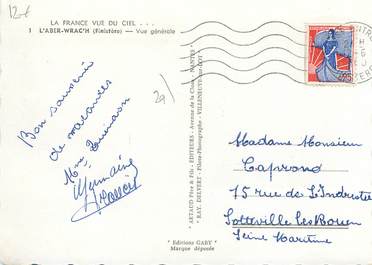 LA FRANCE VUE DU CIEL . . .
1 L'ABER-WRAC'H (Finistère) — Vue générale
Bon souvenir
de vacances
Mme
Germaine
* ARTAUD Père et Fils - ÉDITEURS - Avenue de la Close - NANTES *
* RAY. DELVERT - Pilote-Photographe - VILLENEUVE-sur-LOT *
Madame Monsieur
Caprond
75 rue de l'Industrie
Sotteville les Rouen
Seine Maritime
" Editions GABY "
Marque déposée